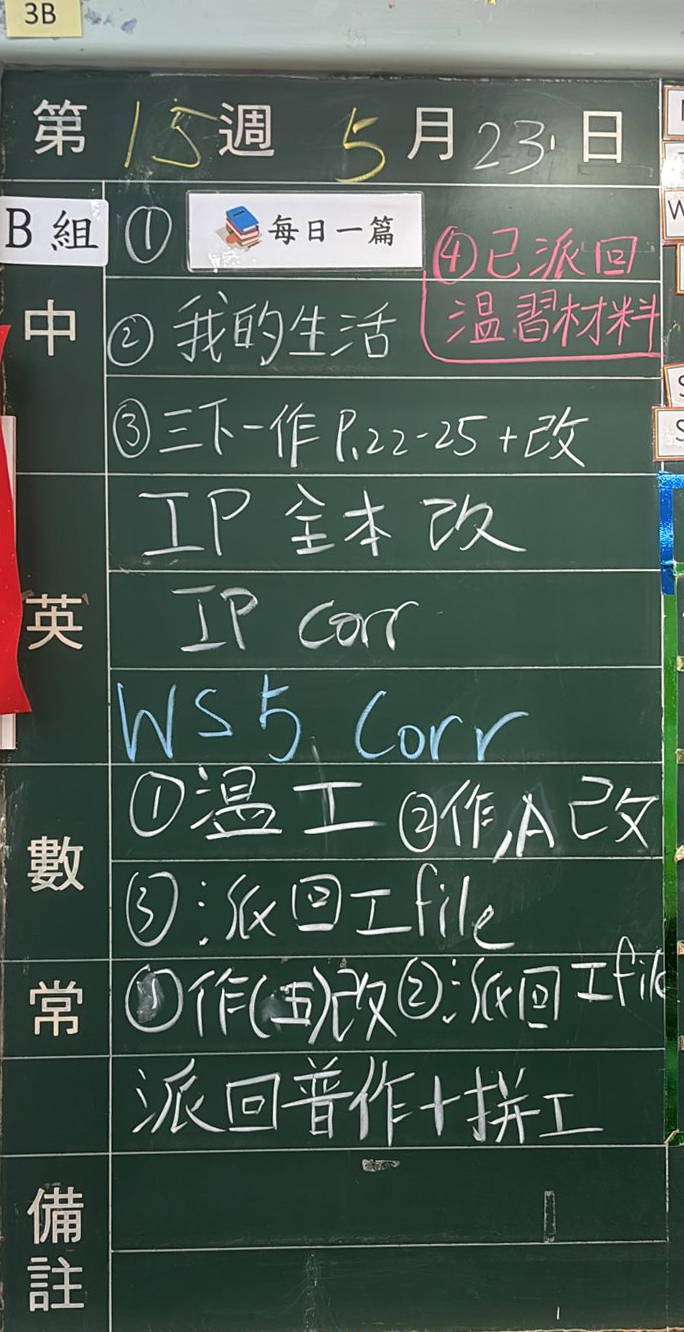 3B
第 15 週 5 月 23 日
B 組
① 每日一篇
④已派回
溫習材料
中
② 我的生活
③三下一作 P.22-25 + 改
IP 全本 改
英
IP corr
WS5 Corr
數
①溫工 ②作,A 改
③派回工file
常
①作(五)改②派回工file
派回普作+拼工
備
註